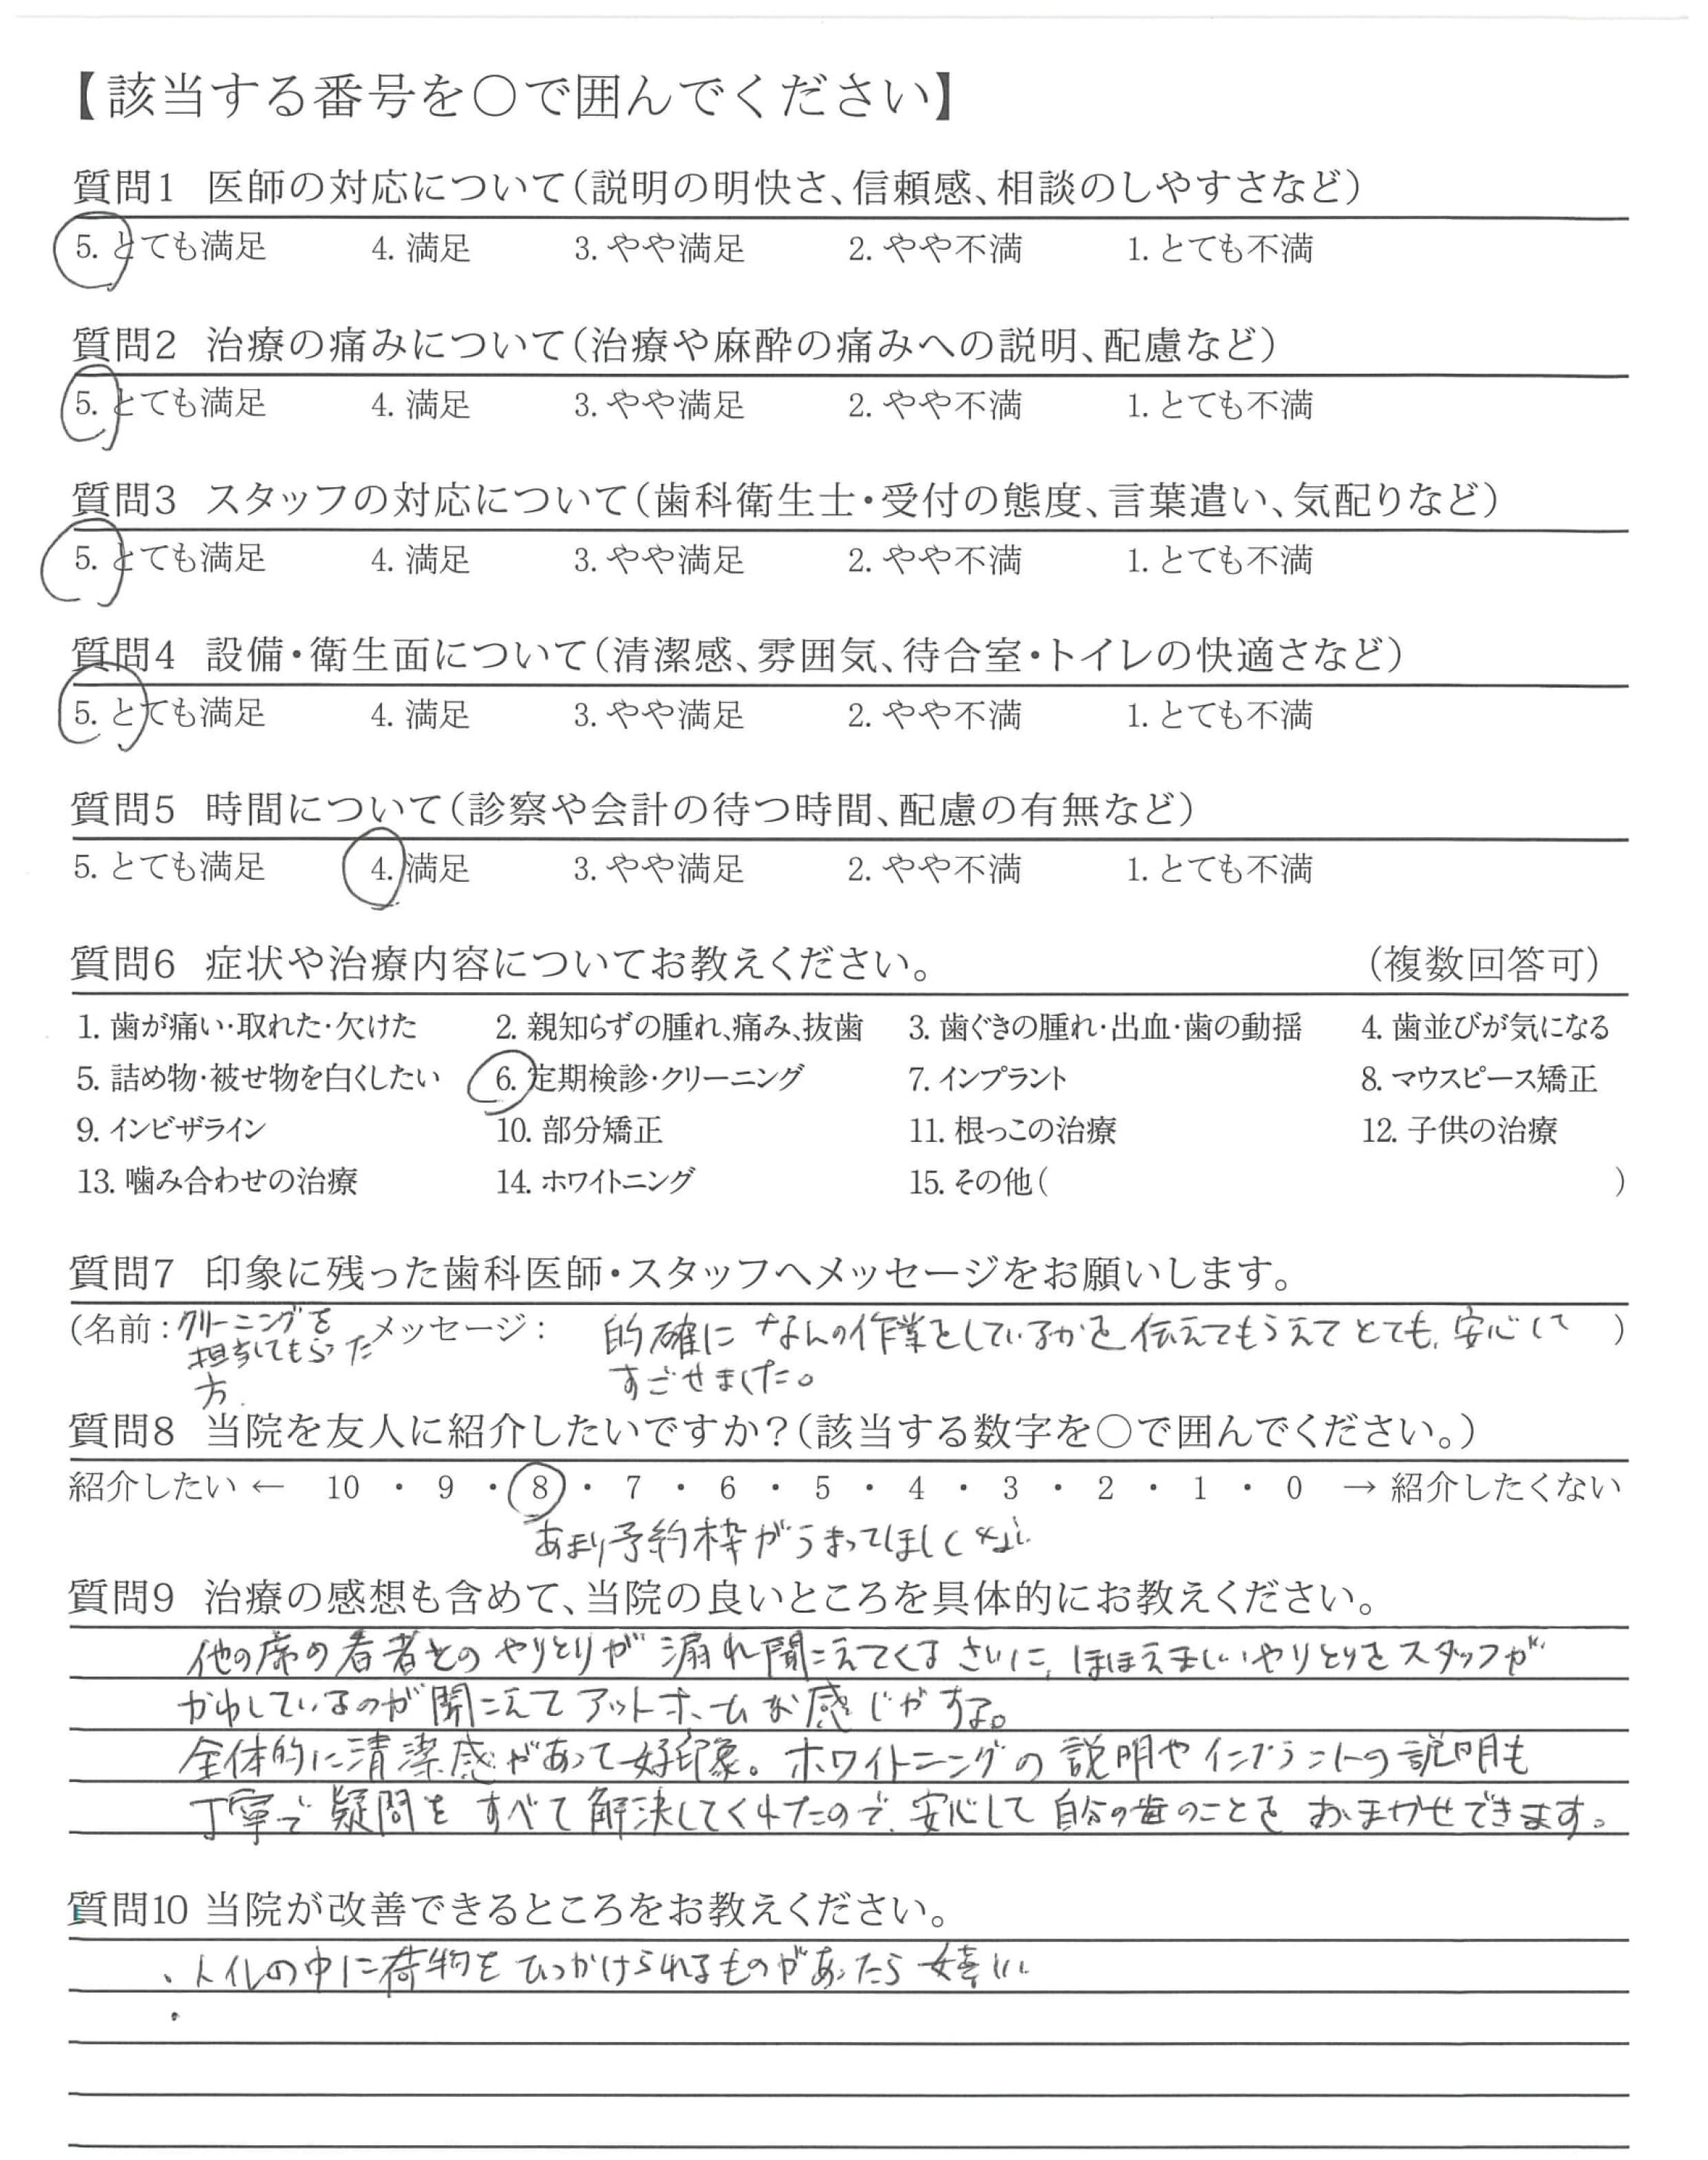 【該当する番号を○で囲んでください】
質問1 医師の対応について(説明の明快さ、信頼感、相談のしやすさなど)
5. とても満足 4. 満足 3. やや満足 2. やや不満 1. とても不満
質問2 治療の痛みについて(治療や麻酔の痛みへの説明、配慮など)
5. とても満足 4. 満足 3. やや満足 2. やや不満 1. とても不満
質問3 スタッフの対応について(歯科衛生士・受付の態度、言葉遣い、気配りなど)
5. とても満足 4. 満足 3. やや満足 2. やや不満 1. とても不満
質問4 設備・衛生面について(清潔感、雰囲気、待合室・トイレの快適さなど)
5. とても満足 4. 満足 3. やや満足 2. やや不満 1. とても不満
質問5 時間について(診察や会計の待つ時間、配慮の有無など)
5. とても満足 4. 満足 3. やや満足 2. やや不満 1. とても不満
質問6 症状や治療内容についてお教えください。 (複数回答可)
1. 歯が痛い・取れた・欠けた 2. 親知らずの腫れ、痛み、抜歯 3. 歯ぐきの腫れ・出血・歯の動揺 4. 歯並びが気になる
5. 詰め物・被せ物を白くしたい 6. 定期検診・クリーニング 7. インプラント 8. マウスピース矯正
9. インビザライン 10. 部分矯正 11. 根っこの治療 12. 子供の治療
13. 噛み合わせの治療 14. ホワイトニング 15. その他( )
質問7 印象に残った歯科医師・スタッフへメッセージをお願いします。
(名前: クリーニングを担当してもらった方. メッセージ: 的確になんの作業をしているかを伝えてもらえてとても、安心して )
すごせました。
質問8 当院を友人に紹介したいですか?(該当する数字を○で囲んでください。)
紹介したい ← 10 ・ 9 ・ 8 ・ 7 ・ 6 ・ 5 ・ 4 ・ 3 ・ 2 ・ 1 ・ 0 → 紹介したくない
あまり予約枠がうまってほしくない
質問9 治療の感想も含めて、当院の良いところを具体的にお教えください。
他の席の患者とのやりとりが漏れ聞こえてくるさいに、ほほえましいやりとりをスタッフが
かわしているのが聞こえてアットホームな感じがする。
全体的に清潔感があって好印象。ホワイトニングの説明やインプラントの説明も
丁寧で疑問をすべて解決してくれたので、安心して自分の歯のことをおまかせできます。
質問10 当院が改善できるところをお教えください。
、トイレの中に荷物をひっかけられるものがあったら嬉しい
・